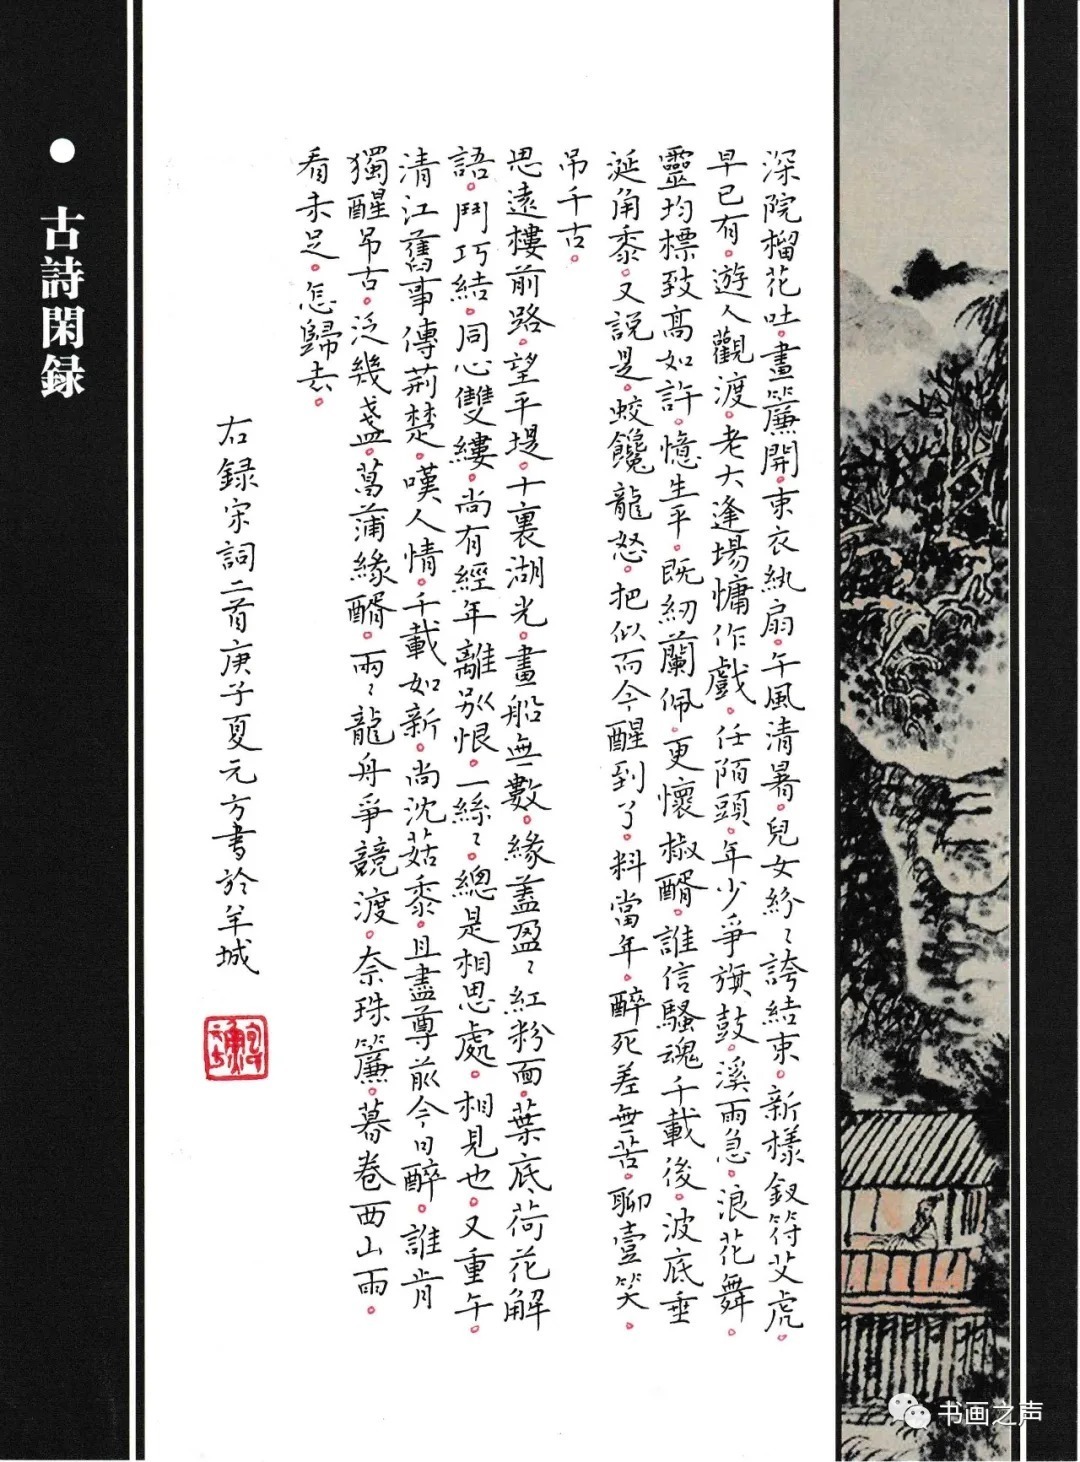 深院榴花吐。畫簾開。束衣紈扇。午風清暑。兒女紛〻誇結束。新樣釵符艾虎。
早已有。遊人觀渡。老大逢場慵作戲。任陌頭。年少爭旗鼓。溪雨急。浪花舞。
靈均標致高如許。憶生平。既紉蘭佩。更懷椒醑。誰信騷魂千載後。波底垂
涎角黍。又說是。蛟饞龍怒。把似而今醒到了。料當年。醉死差無苦。聊壹笑。
吊千古。
思遠樓前路。望平堤。十裏湖光。畫船無數。緣蓋盈〻紅粉面。葉底荷花解
語。鬥巧結。同心雙縷。尚有經年離別恨。一絲〻。總是相思處。相見也。又重午。
清江舊事傳荊楚。嘆人情。千載如新。尚沈菇黍。且盡尊前今日醉。誰肯
獨醒吊古。泛幾盞。菖蒲緣醑。兩〻龍舟爭競渡。奈珠簾。暮卷西山雨。
看未足。怎歸去。
右録宋詞二首庚子夏元方書於羊城
古詩閑録
书画之声